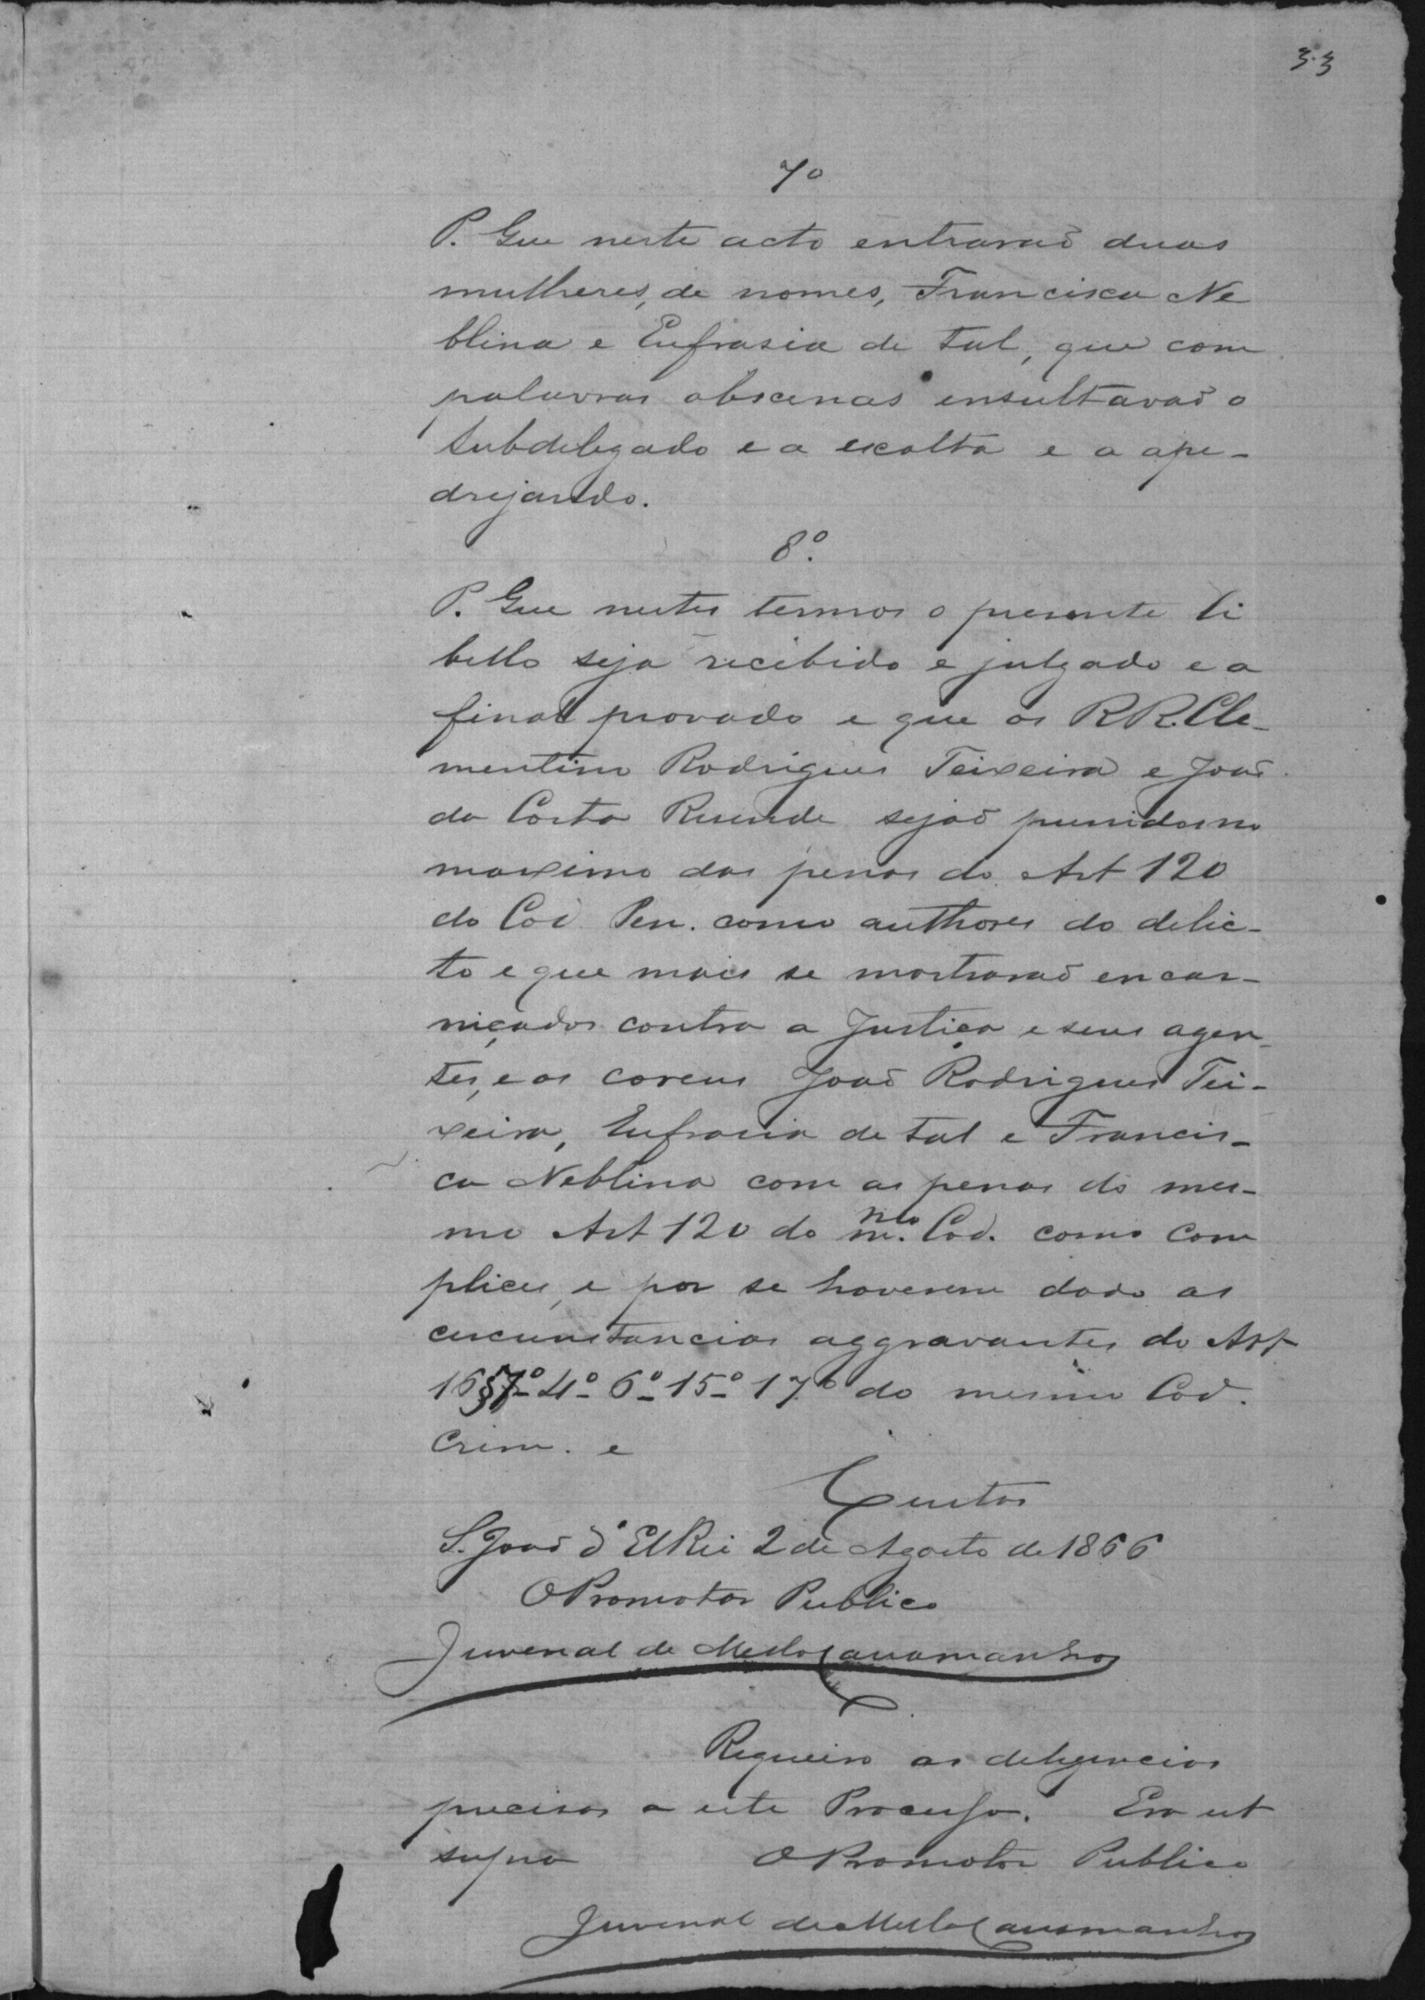 33
7º
P. Que neste acto entravaõ duas
mulheres, de nomes, Francisca Ne
blina e Eufrasia de tal, que com
palavras obscenas insultavaõ o
subdelegado e a escolta e a ape-
drejando.
8º.
P. Que nestes termos o presente li
bello seja recibido e julgado e a
final provado e que os RR. Cle-
mentino Rodrigues Teixeira e Joaõ
da Costa Resende sejaõ punidos no
maximo das penas do Art 120
do Cod Pen. como authores do delic-
to e que mais se mostravaõ encar-
niçados contra a Justiça e seus agen-
tes, e os coreus Joaõ Rodrigues Tei-
xeira, Eufrasia de tal e Francis-
ca Neblina com as penas do mes-
mo Art 120 do m.mo Cod. como com
plices, e por se haverem dado as
circunstancias aggravantes do Art
16 § 1º 4º 6º 15º 17º do mesmo Cod.
Crim. e
Custas
S. Joaõ d'El Rei 2 de Agosto de 1866
O Promotor Publico
Juvenal de Mello Carramanhos
Requeiro as deligencias
precisas a este Processo. Era ut
supra O Promotor Publico
Juvenal de Mello Carramanhos